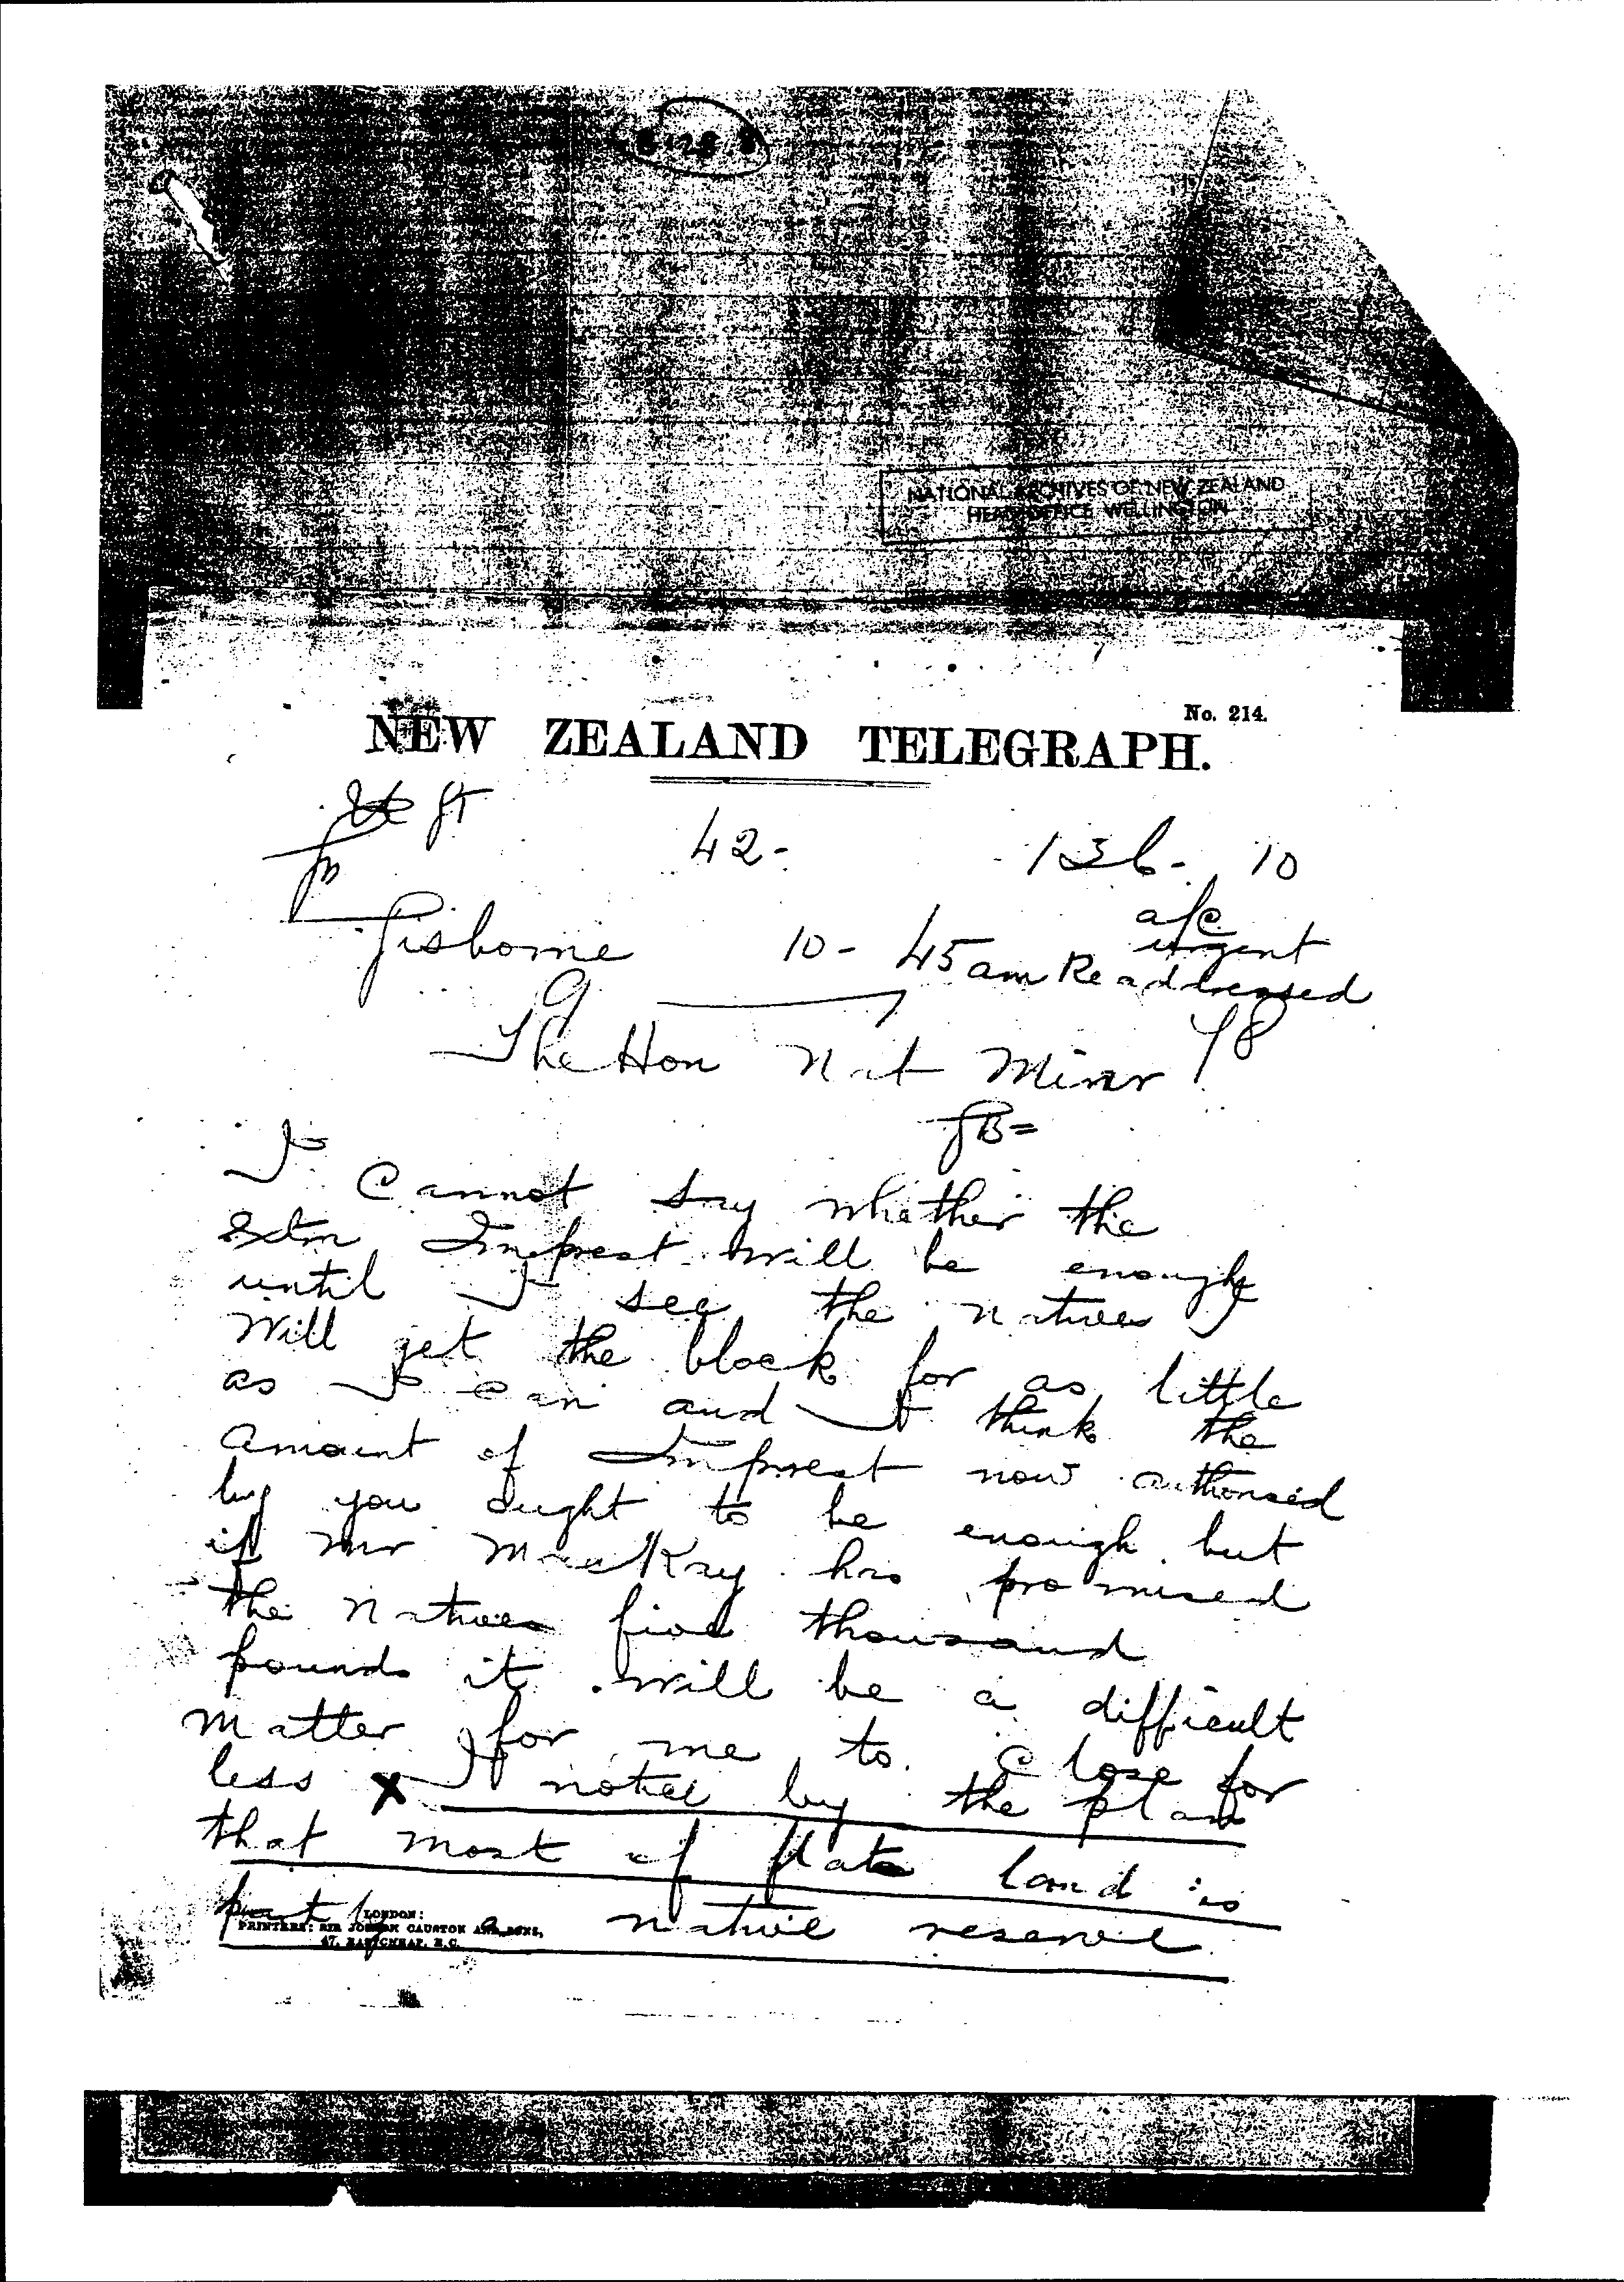 NATIONAL ARCHIVES OF NEW ZEALAND
HEAD OFFICE WELLINGTON
No. 214.
NEW ZEALAND TELEGRAPH.
42- 136- 10
a/c
urgent
Gisborne 10-45am Readdressed
9
The Hon Nat Minr
I Cannot Say whether the
Extra Imprest will be enough
until I see the natives I
Will get the block for as little
as I can and I think the
amount of Imprest now authorised
by you ought to be enough but
if Mr MacKay has promised
the Natives five thousand
pounds it will be a difficult
matter for me to close for
less X I notice by the plan
that most of flat land is
native reserve
LONDON:
PRINTERS: SIR JOSEPH CAUSTON AND SONS,
47, EASTCHEAP, E.C.